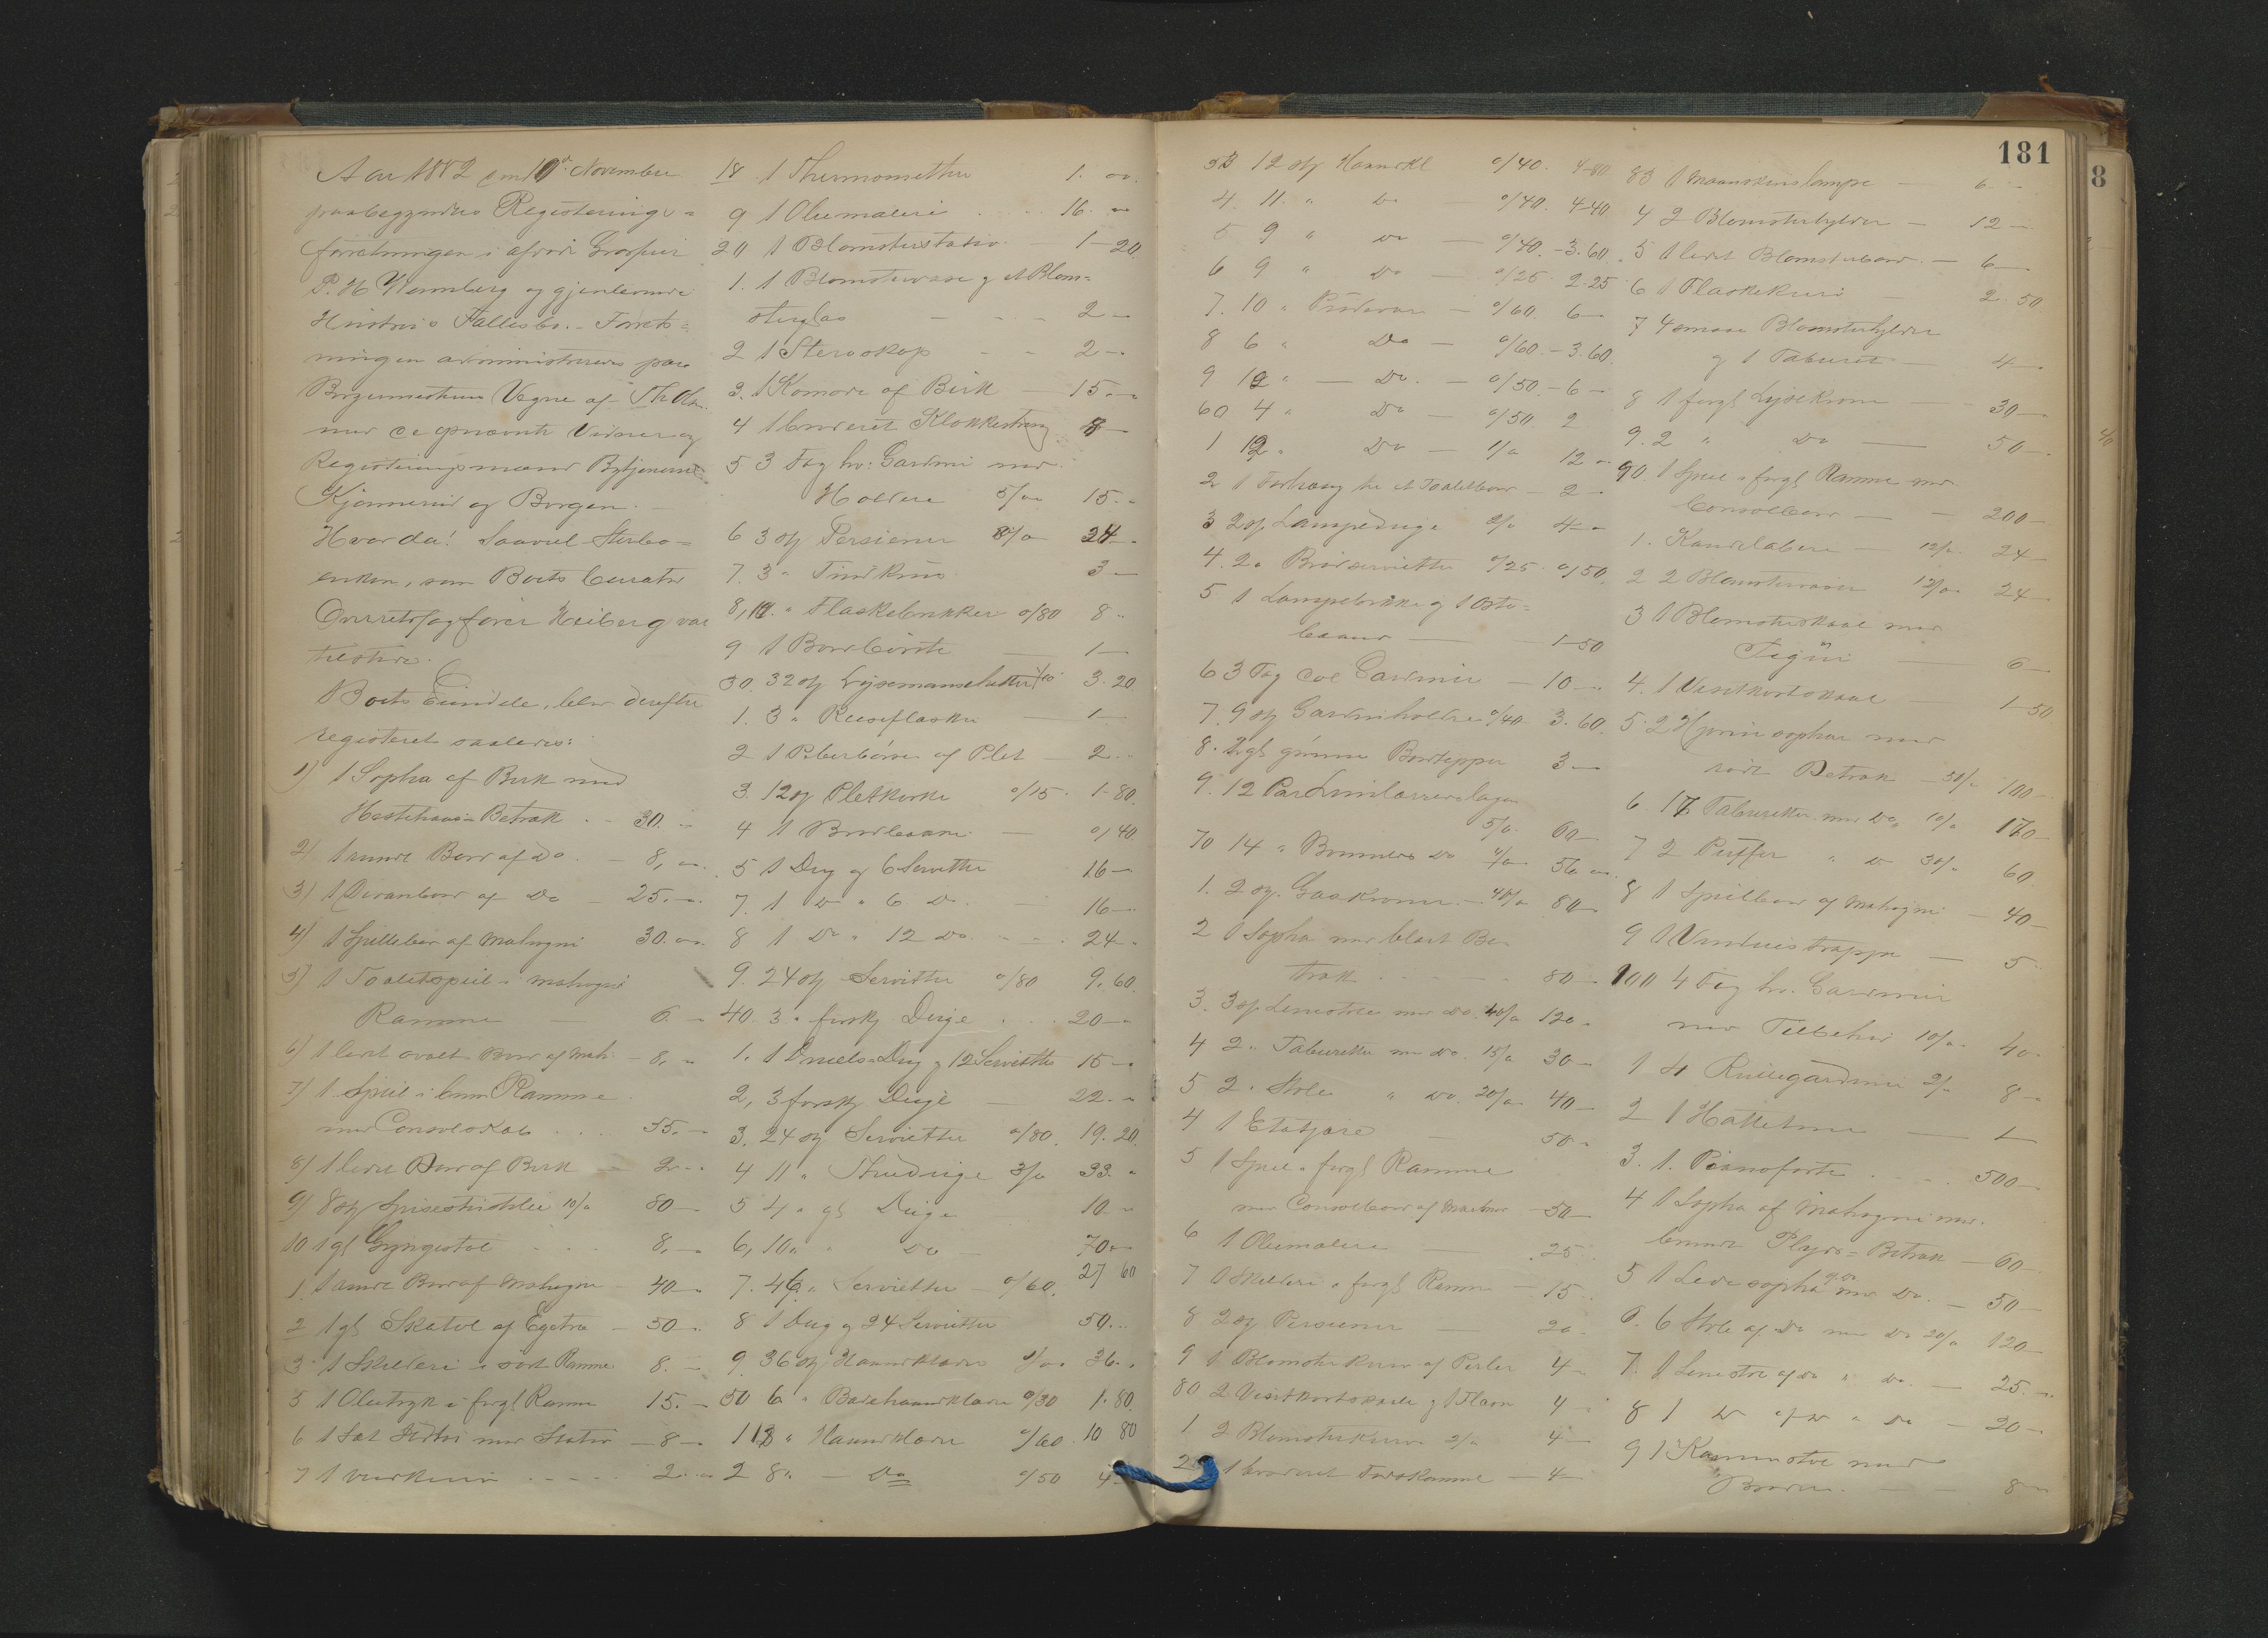 Aar 1882 den 10de November
paabegyndtes Registerings=
forretningen i afdøde Grosserer
P. H. Wennberg og gjenlevende
Hustrues Fællesbo. - Forret=
ningen administreredes paa
Borgermesterens Vegne af
med de opnævnte Vidner og
Registeringsmænd Bytjenerne
og Borgen. -
Hvorda! Saavel Sterbo=
enken, som Boets Curator
Overretssagfører Heiberg var
tilstede.
Boets Eiendele, blev derefter
registeret saaledes:
1) 1 Sopha af Birk med
Hestehaars-Betræk - 30. -
2) 1 rundt Bord af Do. - 8, -
3) 1 Divanbord af Do - 25. -
4) 1 Spillebord af Mahogni 30. -
5) 1 Toiletspeil i mahogni
Ramme - 6. -
6) 1 lidet ovalt Bord af Mah. - 8, -
7) 1 Speil i brun Ramme
med Consolskab . . . 55. -
8) 1 lidet Bord af Birk - 2 - -
9) 8 st Spisestuestole 10/" 80 -
10 1 gl Gyngestol . . . 8, -
1. 1 rundt Bord af Mahogni - 40 -
2 1 gl Skatol af Egetræ - 50 -
3 1 Skilderi i sort Ramme 8. -
5 1 Olietryk i forgl Ramme 15. -
6 1 Sæt Ildtøi med Stativ - 8 -
7 1 Vedkurv - - - - - 2. -
18 1 Thermomether 1. -
9 1 Oliemaleri . . . . 16. -
20 1 Blomsterstativ. 1 - 20
1. 1 Blomstervase og et Blom=
sterglas - - - - 2 -
2 1 Steroskop - - 2 - -
3. 1 Komode af Birk 15. -
4 1 broderet Klokkestreng 8 -
5 3 Fag hv: Gardiner med
Holdere 5/" 15. -
6 3 st Persienner 8/" 24 -
7. 3 " 3 -
8, 10 " Flaskebrikker 0/80 8 -
9 1 Bordbørste - 1 -
30. 32 st Lysemanschetter /10 3. 20
1. 3 " Reiseflasker - 1 -
2 1 Peberbøsse af Plet - 2 - -
3. 12 st Pletkorke 0/15 - 1 - 80.
4 1 Brødbaand - 0/40
5 1 Dug og 6 Servietter 16 -
7. 1 Do " 6 Do. - 16 -
8 1 Do " 12 Do. - - - 24 -
9. 24 st Servietter 0/80 9. 60.
40. 3 " forskj. Duge . . . 20 -
1. 1 Dreiels-Dug og 12 Servietter 15 -
2, 3 forskj. Duge - 22. -
3. 24 st Servietter 0/80. 19. 20
4 11 " Theduge 3/" 33. -
5 4 " gl Duge 10. -
6, 10 " " Do - 70 -
7. 46 " Servietter - 0/60. 27 60
8 1 Dug og 24 Servietter 50. -
9. 36 st Haandklæder 1/" 36. -
50 6 " Badehaandklæder 0/30 1. 80.
1 18 " Haandklæder 0/60 10 80
2 8 " - Do 0/50 4 -
181
53 12 st Haandkl 0/40. 4-80
4. 11. " Do - 0/40. 4-40
5 9 " Do - 0/40. - 3. 60.
6 9 " Do - 0/25 2-25
7. 10 " - 0/60. 6 -
8 6 " Do - 0/60. - 3. 60.
9 12 " - Do. - 0/50. - 6 -
60 4 " Do - 0/50. 2
1 12 " Do - 1/" 12 -
2 1 Forhæng til et Toiletbord - 2 -
3 2 st Lampeduge 2/" 4 -
4. 2 " Brødservietter 0/25. 0/50.
5 1 Lampebrikke og 1 Oste=
baand - 1-50
6 3 Fag Gardiner - 10 -
7. 9 st Gardinholdere 0/40 3. 60.
8. 2 gl grønne Bordtepper 3 -
9. 12 Par Linlærredslagen
5/" 60 -
70 14 " Bomulds Do 4/" 56 -
1. 2 st. Gaskroner - 40/" 80 -
2 1 Sopha med blaat Be-
træk . - - - 80 -
3. 3 st Lænestole med Do. 40/" 120 -
4 2 " Tabouretter med Do. 15/" 30 -
5 2 " Stole " Do. 20/" 40 -
4 1 Etatjare - 50 -
5 1 Speil i forgl Ramme
med Consolbord af Marmor - 50 -
6 1 Oliemaleri - 25 -
7 1 Skilderi i forgl Ramme - 15 -
8 2 st Persienner - 20 -
9 1 Blomsterkurv af Perler 4 -
80 2 Visitkortskaale og 1 Flacon 4 -
1 2 Blomsterkurve 2/" 4 -
2 1 broderet Fodskammel - 4 -
83 1 Maaneskinslampe - 6 -
4 2 Blomsterhylder - 12 -
5 1 lidet Blomsterbord - 6 -
6 1 Flaskekurv - 2. 50
7 4 smaa Blomsterhylder
og 1 Taburet - 4 -
8 1 forgl Lysekrone - 30 -
9. 2 " Do - 50 -
90. 1 Speil i forgl Ramme med
Consolbord - - 200 -
1. Kandelabere - 12/" 24 -
2 2 Blomstervaser 12/" 24 -
3 1 Blomsterskaal med
Figur - 6 -
4. 1 Visitkortskaal 1-50
5. 2 Hjørnesophaer med
rødt Betræk - 50/" 100 -
6. 17 Tabouretter med Do. 10/" 170 -
7 2 Puffer " Do 30/" 60
8 1 Spillebord af Mahogni - 40 -
9 1 Vinduestrappe - 5
100 4 Fag hv. Gardiner
med Tilbehør 10/" 40 -
1 4 Rullegardiner 2/" 8 -
2 1 - 1 -
3. 1. Pianoforte . . . . 500 -
4 1 Sopha af Mahogni med
brunt Plyds-Betræk - 60 -
5 1 Sopha af Do med Do. - 50 -
6. 6 Stole af Do med Do 20/" 120 -
7. 1 Lænestol af Do " Do. - 25. -
8 1 Do af Do " Do - 20 -
9 1 med
Broderi. - - - 8 -
8